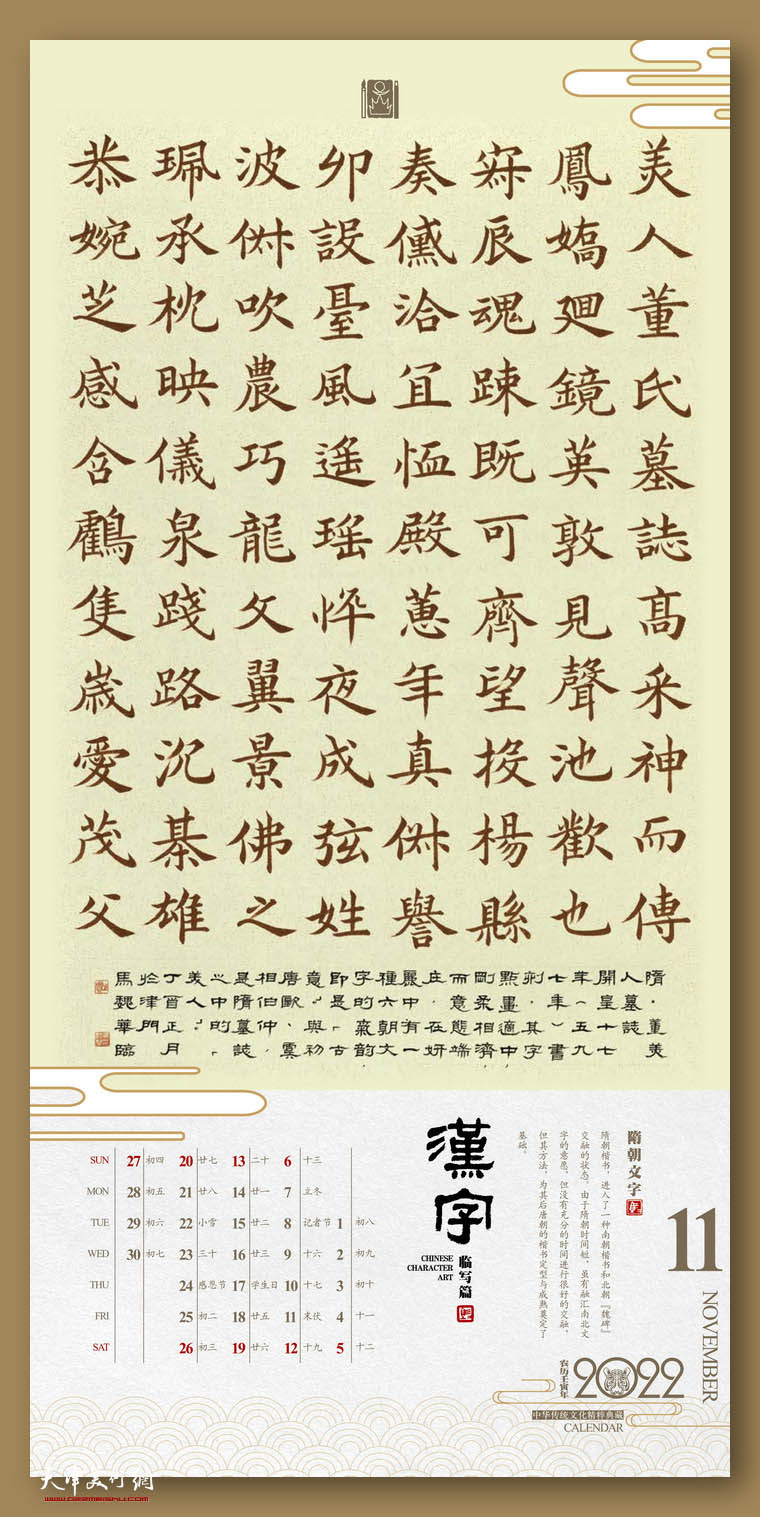 美人董氏墓誌高采神而傳
鳳嬌廻鏡英敦見聲池歡也
寐辰魂踈既可齊望投楊縣
奏儻洽宜恤殿蕙年真休譽
卯設臺風遥瑶悴夜成弦姓
波休吹農巧龍文翼景佛之
珮承枕映儀泉踐路沉綦雄
恭婉芝感含鸖隻歲愛茂父
隋·董美
人墓誌
開皇十七
年（五九
七年）書
刻，其字
點畫適中
剛柔相濟
而意態端
庄，在妍
麗中有一
種六朝文
字的稟韵
即是古
意與初
唐歐、虞
相伯仲、
是隋墓誌
之中的「
美人」
丁酉正月
於津門
馬魏華臨
隋朝文字
隋朝楷书，进入了一种南朝楷书和北朝『魏碑』
交融的状态。由于隋朝时间短，虽有融汇南北文
字的意愿，但没有充分的时间进行很好的交融，
但其方法，为其后唐朝的楷书定型与成熟奠定了
基础。
漢字
临写篇
CHINESE
CHARACTER
ART
SUN 27 初四 20 廿七 13 二十 6 十三
MON 28 初五 21 廿八 14 廿一 7 立冬
TUE 29 初六 22 小雪 15 廿二 8 记者节 1 初八
WED 30 初七 23 三十 16 廿三 9 十六 2 初九
THU 24 感恩节 17 学生日 10 十七 3 初十
FRI 25 初二 18 廿五 11 末伏 4 十一
SAT 26 初三 19 廿六 12 十九 5 十二
11
NOVEMBER
农历壬寅年
2022
中华传统文化精粹典藏
CALENDAR
天津美術網